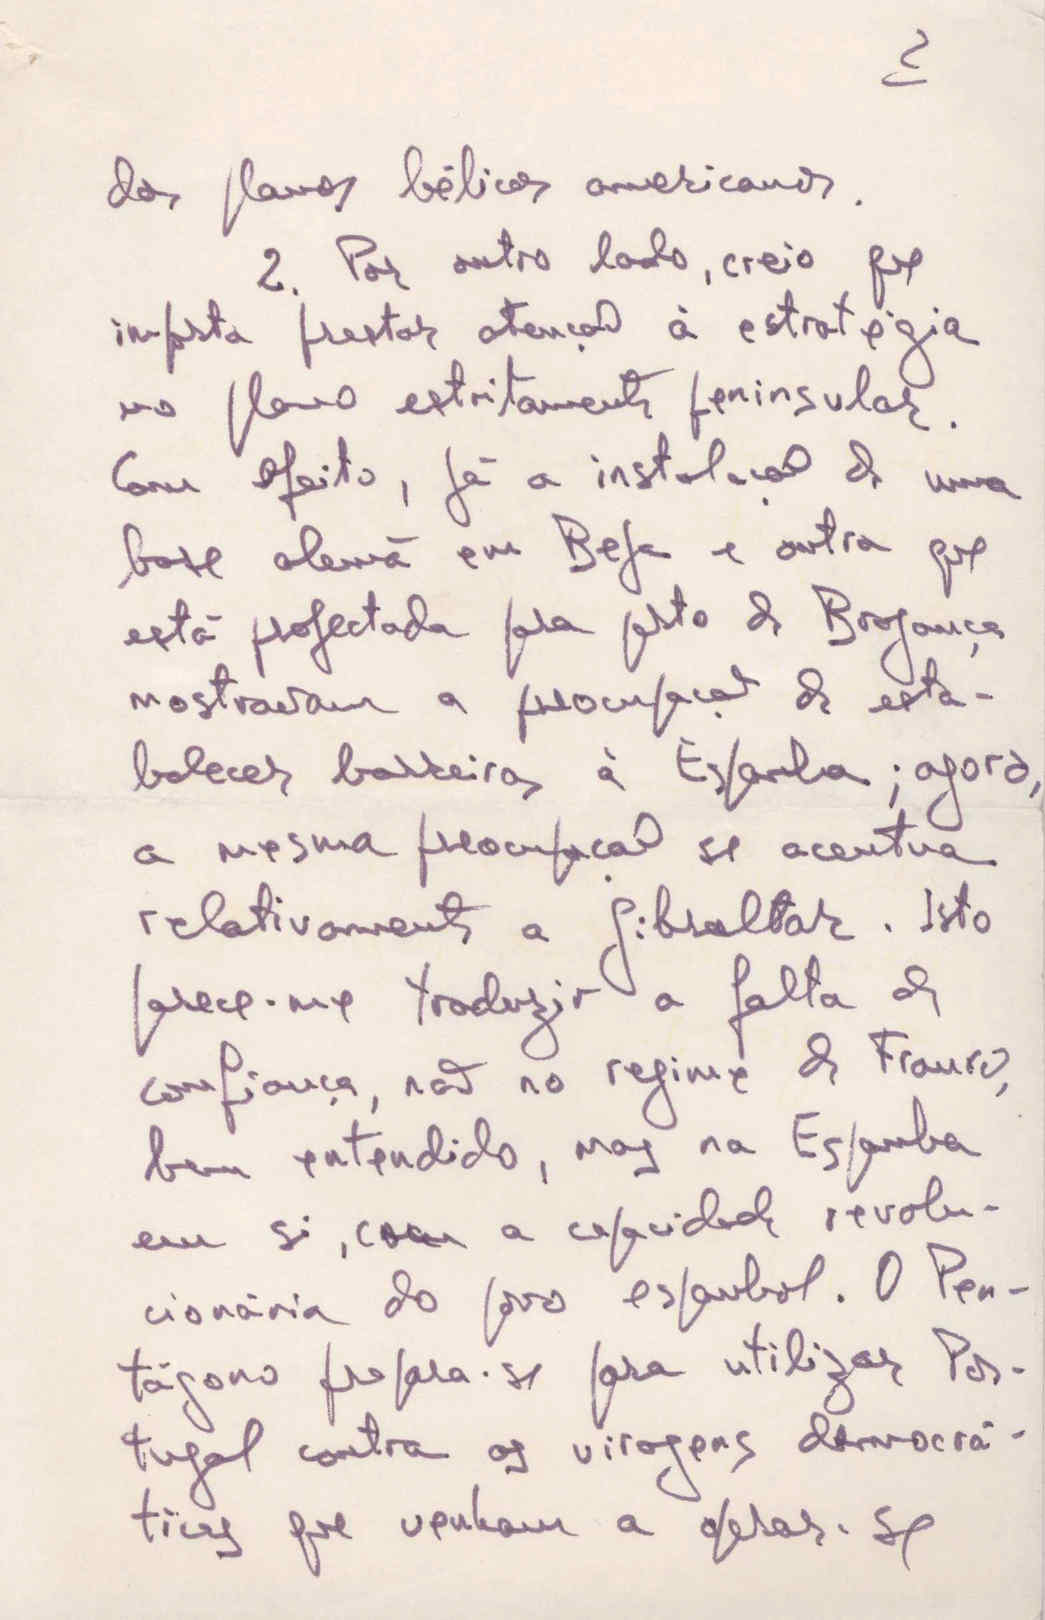 2
dos planos bélicos americanos.
2. Por outro lado, creio que
importa prestar atenção à estratégia
no plano estritamente peninsular.
Com efeito, já a instalação de uma
base alemã em Beja e outra que
está projectada para perto de Bragança
mostravam a preocupação de esta-
belecer barreiras à Espanha; agora,
a mesma preocupação se acentua
relativamente a Gibraltar. Isto
parece-me traduzir a falta de
confiança, não no regime de Franco,
bem entendido, mas na Espanha
em si, com a capacidade revolu-
cionária do povo espanhol. O Pen-
tágono prepara-se para utilizar Por-
tugal contra as viragens democrá-
ticas que venham a operar-se